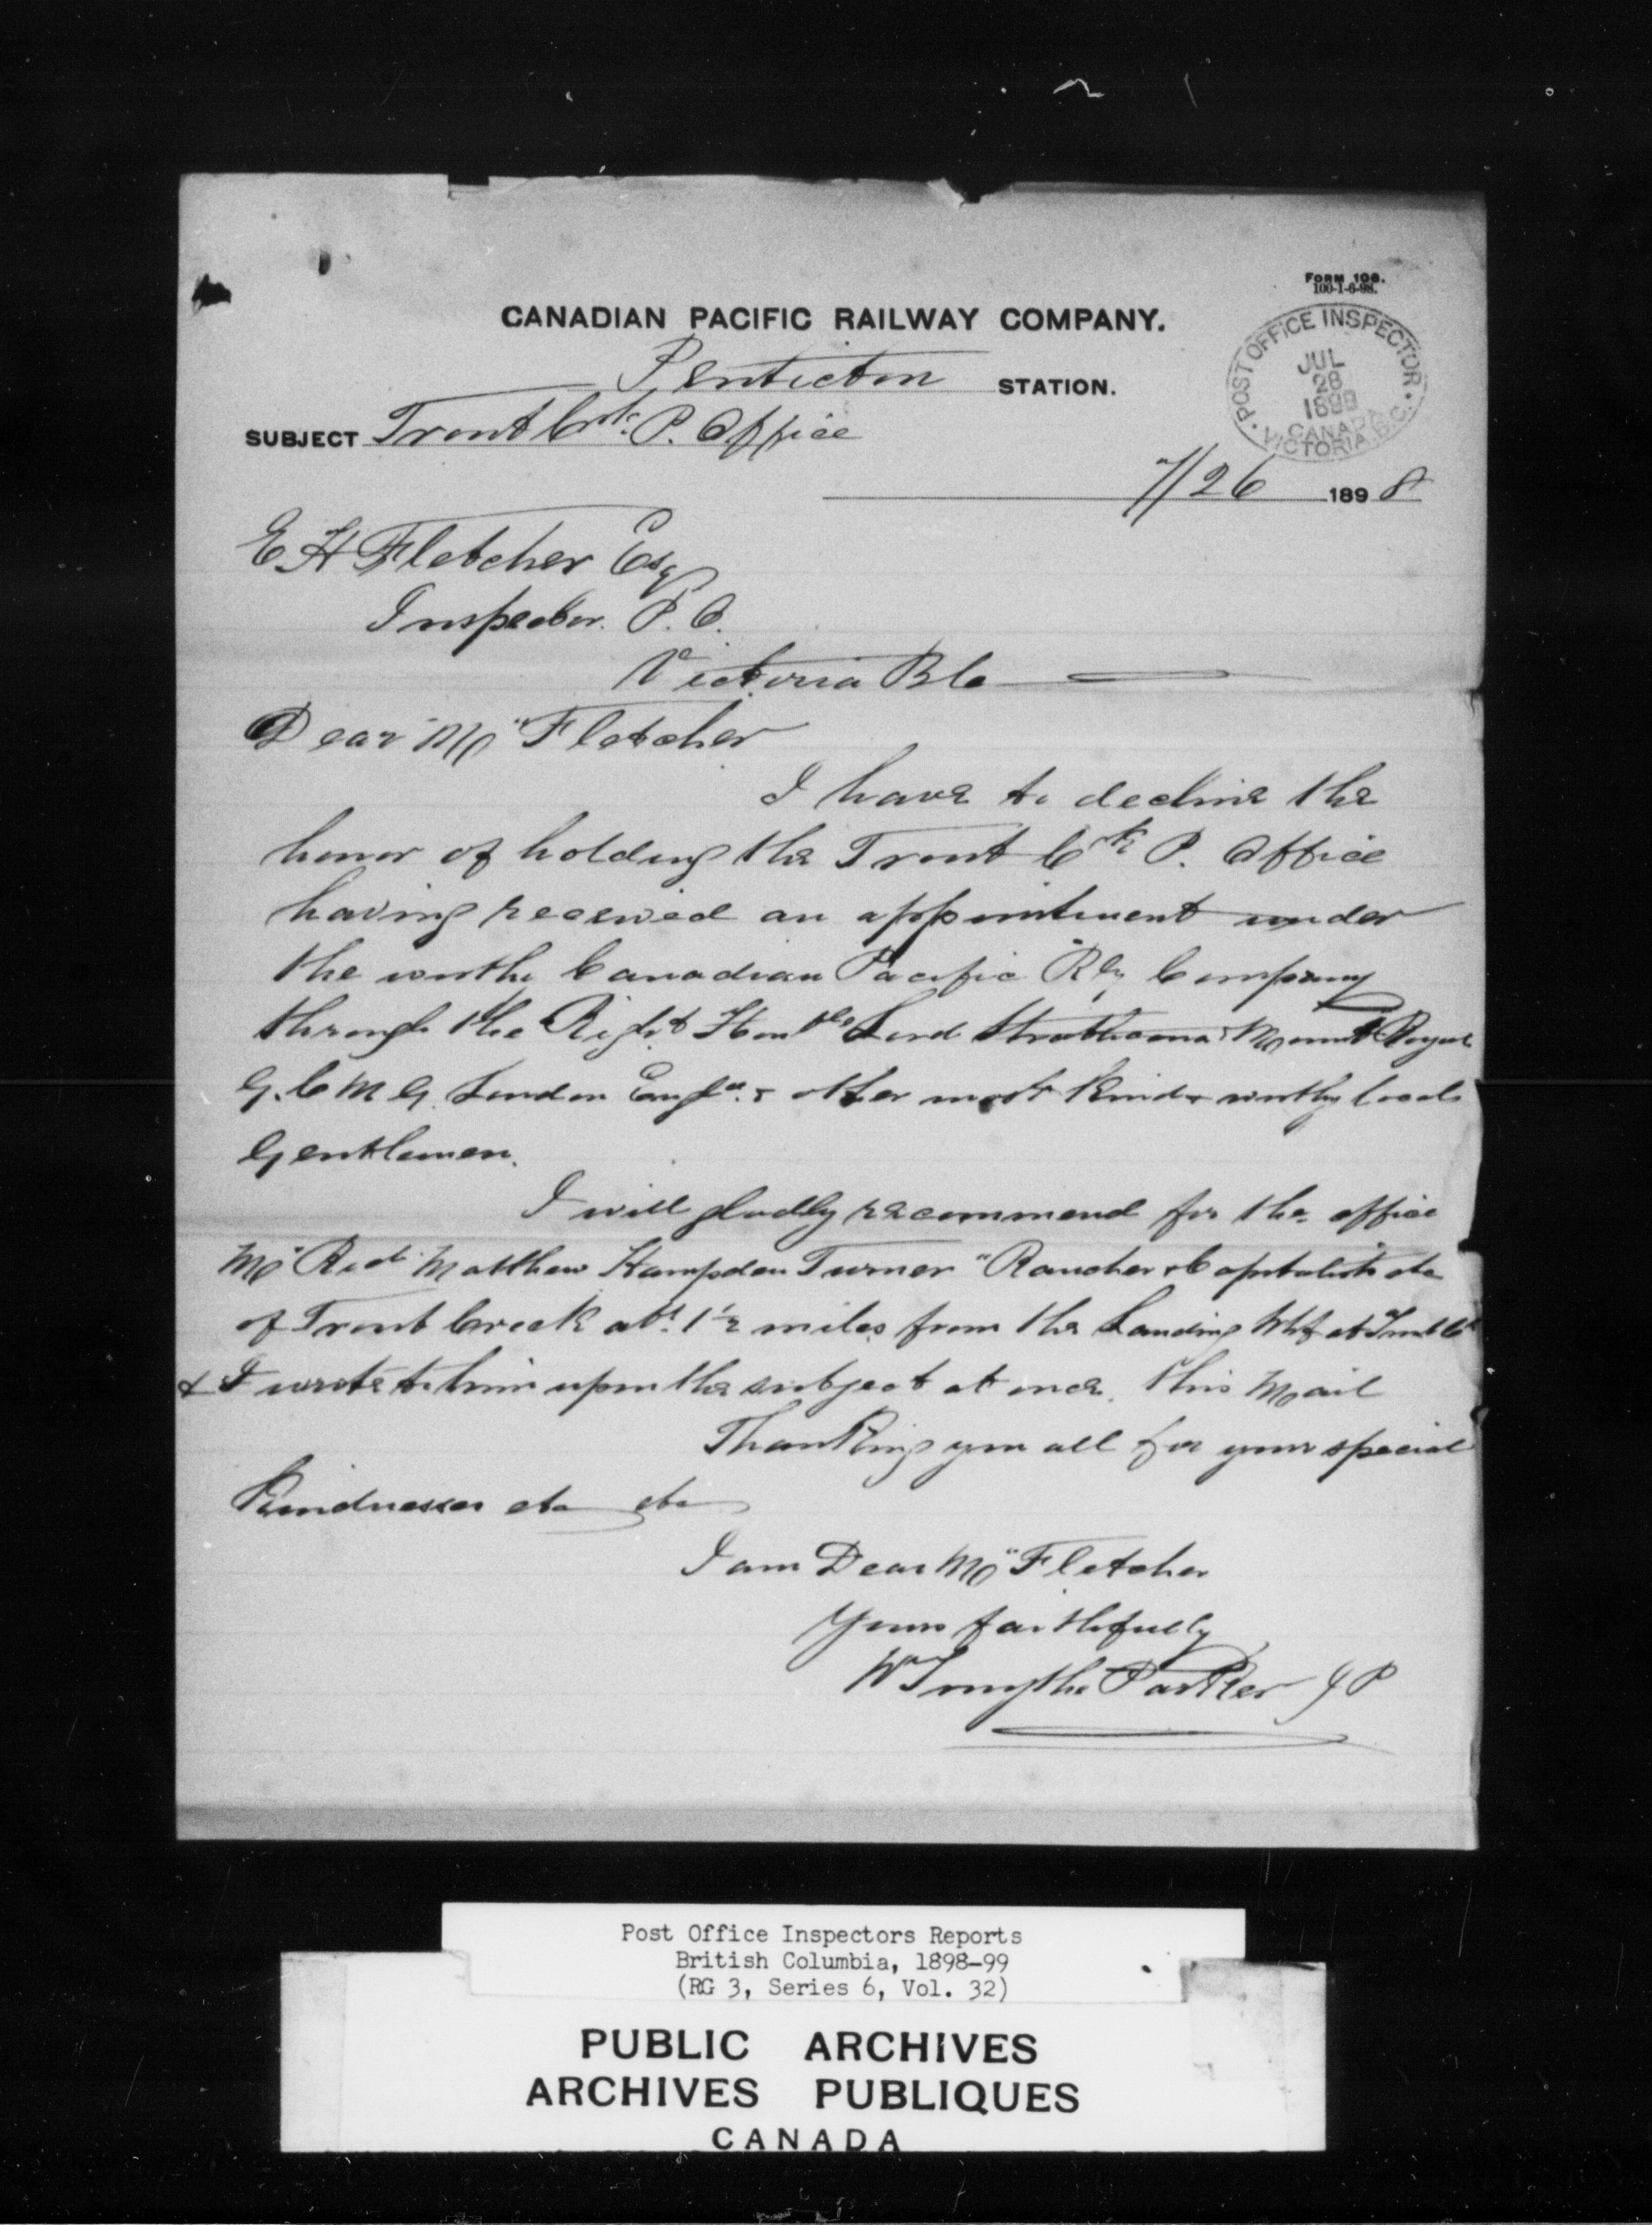 FORM 108.
100-1-6-98.
CANADIAN PACIFIC RAILWAY COMPANY.
Penticton STATION.
POST OFFICE INSPECTOR
JUL
28
1898
CANADA
VICTORIA, B.C.
SUBJECT Trout Crk. P. Office
7/26 1898
E H Fletcher Esq
Inspector. P. O.
Victoria B C
Dear Mr Fletcher
I have to decline the
honor of holding the Trout Crk P. Office
having received an appointment under
the worthy Canadian Pacific Rly Company
through the Right Honble Lord Strathcona & Mount Royal
G. C M G. London Engld. & other most kind & worthy local
Gentlemen.
I will gladly recommend for the office
Mr Richd Matthew Hampden Turner "Rancher & Capitalist etc
of Trout Creek abt. 1 1/2 miles from the Landing Whf at Trout Ck
& I wrote to him upon the subject at once. this Mail
Thanking you all for your special
Kindnesses etc etc
I am Dear Mr Fletcher
Yours faithfully
Wm Smythe Parker J P
Post Office Inspectors Reports
British Columbia, 1898-99
(RG 3, Series 6, Vol. 32)
PUBLIC ARCHIVES
ARCHIVES PUBLIQUES
CANADA